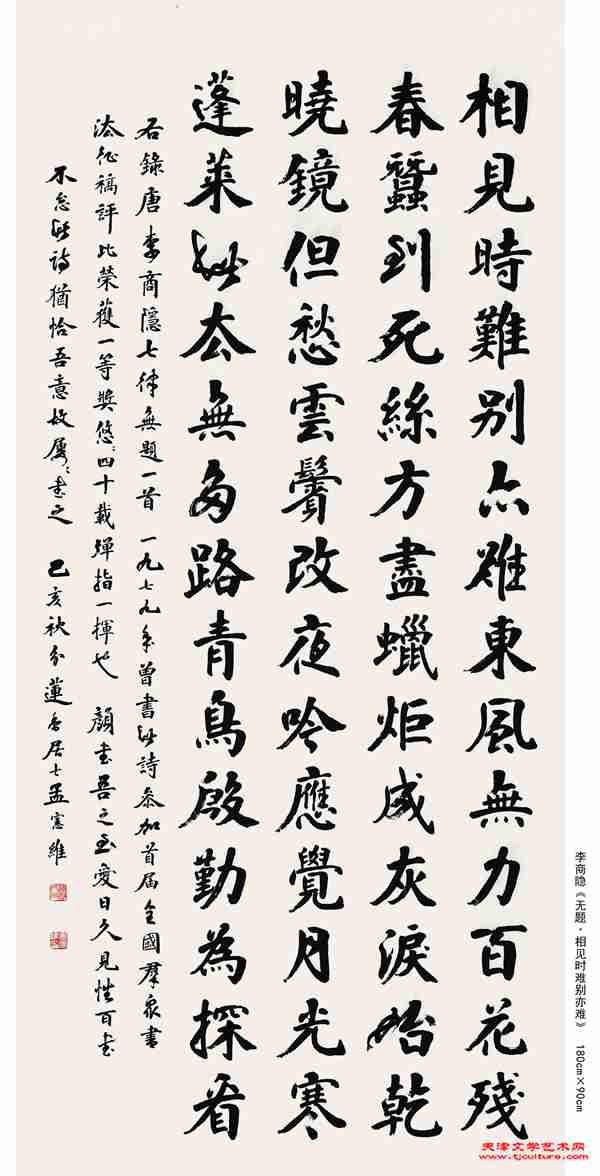 相見時難别亦難東風無力百花殘
春蠶到死絲方盡蠟炬成灰淚始乾
曉鏡但愁雲鬢改夜吟應覺月光寒
蓬萊此去無多路青鳥殷勤為探看
右錄唐李商隱七律無題一首 一九七九年曾書此詩參加首届全國羣众書
法征稿評比榮獲一等獎悠悠四十載彈指一揮也 顏書吾之至愛日久見性百書
不怠此詩猶恰吾意故屢屢書之 己亥秋分蓮香居士孟憲維
李商隐《无题·相见时难别亦难》 180cm×90cm
天津文学艺术网
www.tjculture.com